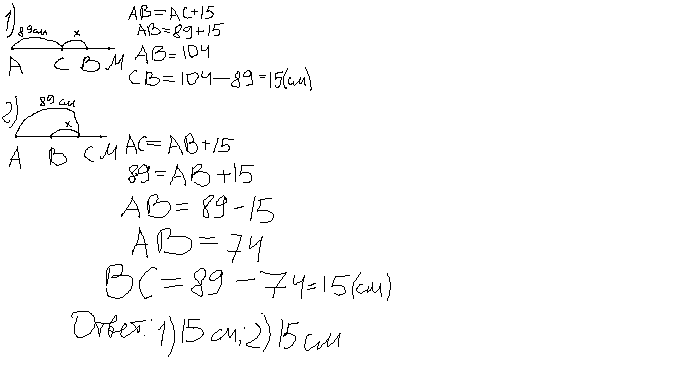 1)
89см x
A C B M
AB=AC+15
AB=89+15
AB=104
CB=104-89=15(см)
2)
89 см
x
A B C M
AC=AB+15
89=AB+15
AB=89-15
AB=74
BC=89-74=15(см)
Ответ: 1)15 см; 2)15 см